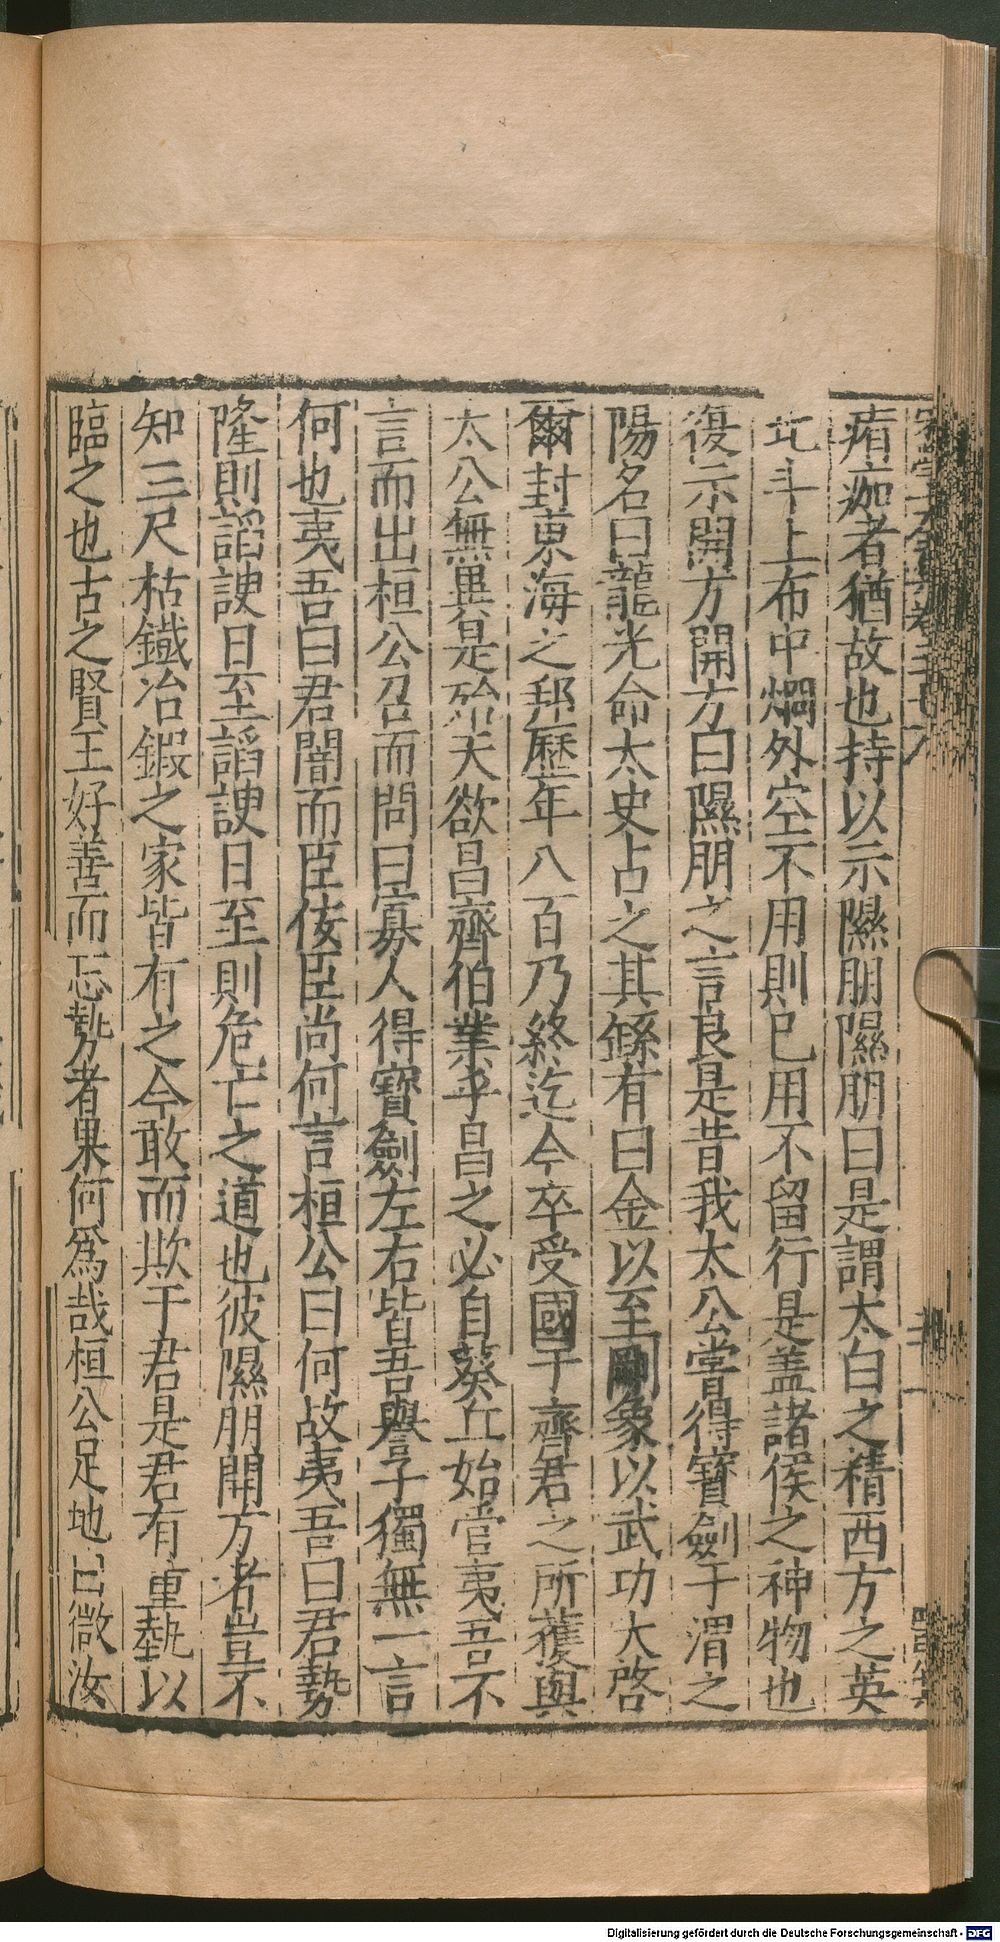 痏痂者猶故也持以示隰朋隰朋曰是謂太白之精西方之英
北斗上布中爓外空不用則已用不留行是盖諸侯之神物也
復示開方開方曰隰朋之言良是昔我太公嘗得寶劍于渭之
陽名曰龍光命太史占之其繇有曰金以至剛象以武功大啓
爾封東海之邦歷年八百乃終迄今卒受國于齊君之所獲與
太公無異是殆天欲昌齊伯業乎昌之必自葵丘始嘗夷吾不
言而出桓公召而問曰寡人得寶劍左右皆吾譽子獨無一言
何也夷吾曰君闇而臣佞臣尚何言桓公曰何故夷吾曰君勢
隆則謟諛日至謟諛日至則危亡之道也彼隰朋開方者豈不
知三尺枯鐵冶鍛之家皆有之今敢而欺于君是君有重埶以
臨之也古之賢王好善而忘勢者果何爲哉桓公足地曰微汝
Digitalisierung gefördert durch die Deutsche Forschungsgemeinschaft - DFG